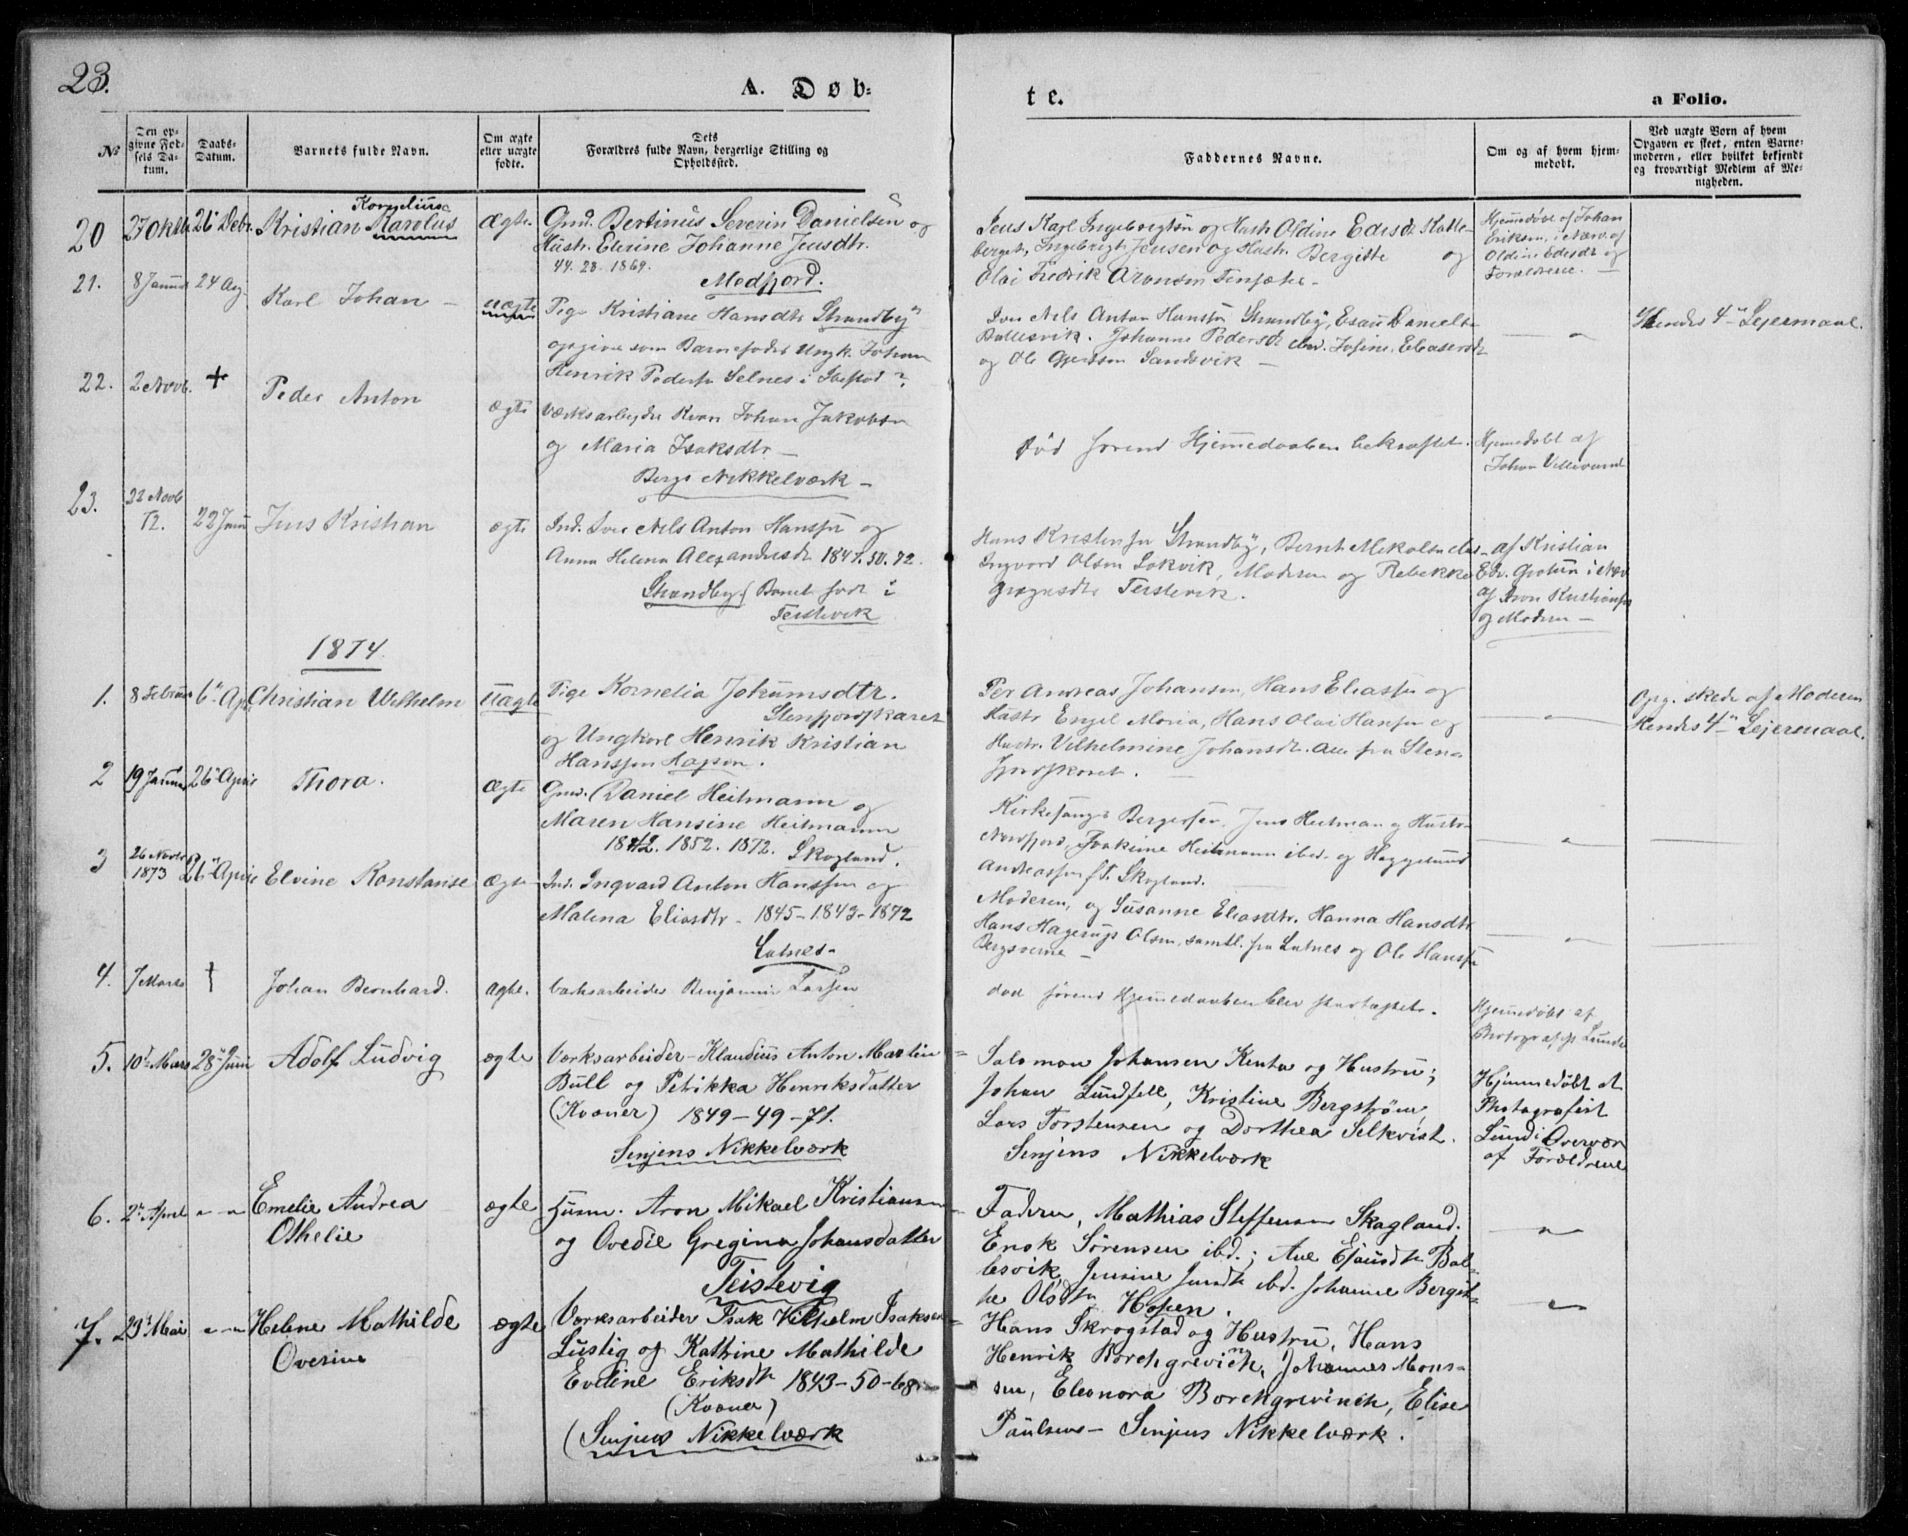 23.
A. Døb-
te.
a Folio.
No
Den op-
givne Fød-
sels Da-
tum.
Daabs-
Datum.
Barnets fulde Navn.
Om ægte
eller uægte
fødte.
Dets
Forældres fulde Navn, borgerlige Stilling og
Opholdssted.
Faddernes Navne.
Om og af hvem hjem-
medøbt.
Ved uægte Børn af hvem
Opgaven er skeet, enten Barne-
moderen, eller hvilket bekjendt
og troværdigt Medlem af Me-
nigheden.
20
27 Oktb
26 Debr.
Kornelius
Kristian Karolus
Ægte.
Gmd. Bertinus Severin Danielsen og
Hustr. Elerine Johanne Jensdtr.
44. 28. 1869.
Medfjord.
Jens Karl Ingebrigtsen og Hustr Oldine Edisdt Katte-
berget, Ingebrigt Jensen og Hustr. Bergitte og
Olai Fredrik Aronsen Finsæter
Hjemmedøbt af Johan
Eriksen, i Nærv. af
Oldine Edisdt og
Forældrene. —
21.
8 Januar
24 Aug
Karl Johan —
uægte
Pige Kristiane Hansdtr Strandby
opgiver som Barnefader Ungk. Johan
Henrik Peders Selnes i Ibestad
Iver Nels Anton Hansen Strandby, Esau Daniels
Ballesvik. Johanne Pedersdt ibd. Josine Eleasersdt
og Ole Gjertsen Sandsvik —
Hendes 4de Lejermaal.
22.
2 Novb.
+
Peder Anton
ægte
Værksarbejder Kvæn Johan Jakobsen
og Maria Isaksdtr —
Bergs Nikkelværk —
død førend Hjemmedaaben bekræftet.
Hjemmedøbt af
Johan
23.
22 Novb
72.
22 Juni
Jens Kristian
ægte
Ind. Iver Nels Anton Hansen og
Anna Helena Alexandersdt 1847. 50. 72.
Strandby (Barnet født i
Teistevik
Hans Kristensen Strandby, Bernt Nikolsen ibd
Ingvard Olsen Lekvik, Moderen og Rebekke
Teistevik.
af Kristian
Edv. i Nærv
af Aron Kristians
og Moderen —
1874.
1.
8 Februar
6te Apr
Christian Wilhelm
Uægte
Pige Kornelia Jokumsdtr.
Stenfjordskaret
og Ungkarl Henrik Kristian
Hanssen Hagson.
Per Andreas Johansen, Hans Eliassen og
Hustr Engel Maria, Hans Olai Hansen og
Hustr. Vilhelmine Johansdt. Alle fra Sten-
fjordskaret.
Opg. skede af Moderen
Hendes 4de Lejermaal.
2
19 Januar
26te April
Thora.
Ægte
Gmd. Daniel Heitmann og
Maren Hansine Heitmann
1842. 1852. 1872. Skogland.
Kirkesanger Bergersen, Jens Heitman og Hustr
Nordfjord, Joakime Heitmann ibd. og Heggelund
Andreassen ft. Skogland.
3
26 Novbr
1873
26te April
Elvine Konstanse
Ægte
Ind. Ingvard Anton Hanssen og
Malena Eliasdtr. 1845–1843–1872
Lutnes —
Moderen, og Susanne Eliasdtr. Hanna Hansdtr
Hans Hagerup Olsen, samtl. fra Lutnes og Ole Hanssen
4.
7 Marts
†
Johan Bernhard.
Ægte.
Værksarbeider Benjamin Larsen
død førend Hjemmedaaben blev stadfæstet.
Hjemmedøbt af
Photografist Lunde
5.
10de Mars
28de Juni
Adolf Ludvig
ægte
Værksarbeider Klaudius Anton Martin
Bull og Petrikka Henriksdatter
(Kvæner) 1849–49–71.
Senjens Nikkelværk
Salomon Johansen Kenta og Hustru;
Johan Lundfell, Kristine Bergstrøm,
Lars Torstensen og Dorthea Selkvist.
Senjens Nikkelværk
Hjemmedøbt af
Photografist
Lund i Overvær
af Forældrene
6.
2de April
" "
Emelie Andrea
Othelie
ægte
Husm. Aron Mikael Kristiansen
og Ovedie Gregina Johansdatter
Teistevig
Faderen, Mathias Steffensen Skagland.
Enok Sørensen ibd.; Ane Esaudtr Bal-
lesvik, Jensine Jensdtr ibd. Johanne Bergit-
te Olsdtr Hopen.
7.
29de Mai
" "
Helene Mathilde
Overine
ægte
Værksarbeider Isak Vilhelm Isaksen
Lustig og Kathrine Mathilde
Eveline Eriksdtr 1843–50–68
(Kvæner)
(Senjens Nikkelværk
Hans Skrogstad og Hustru, Hans
Henrik Borchgrevinch, Johannes Mons-
sen, Eleonora Borchgrevinch, Elise
Paulsen — Senjens Nikkelværk.